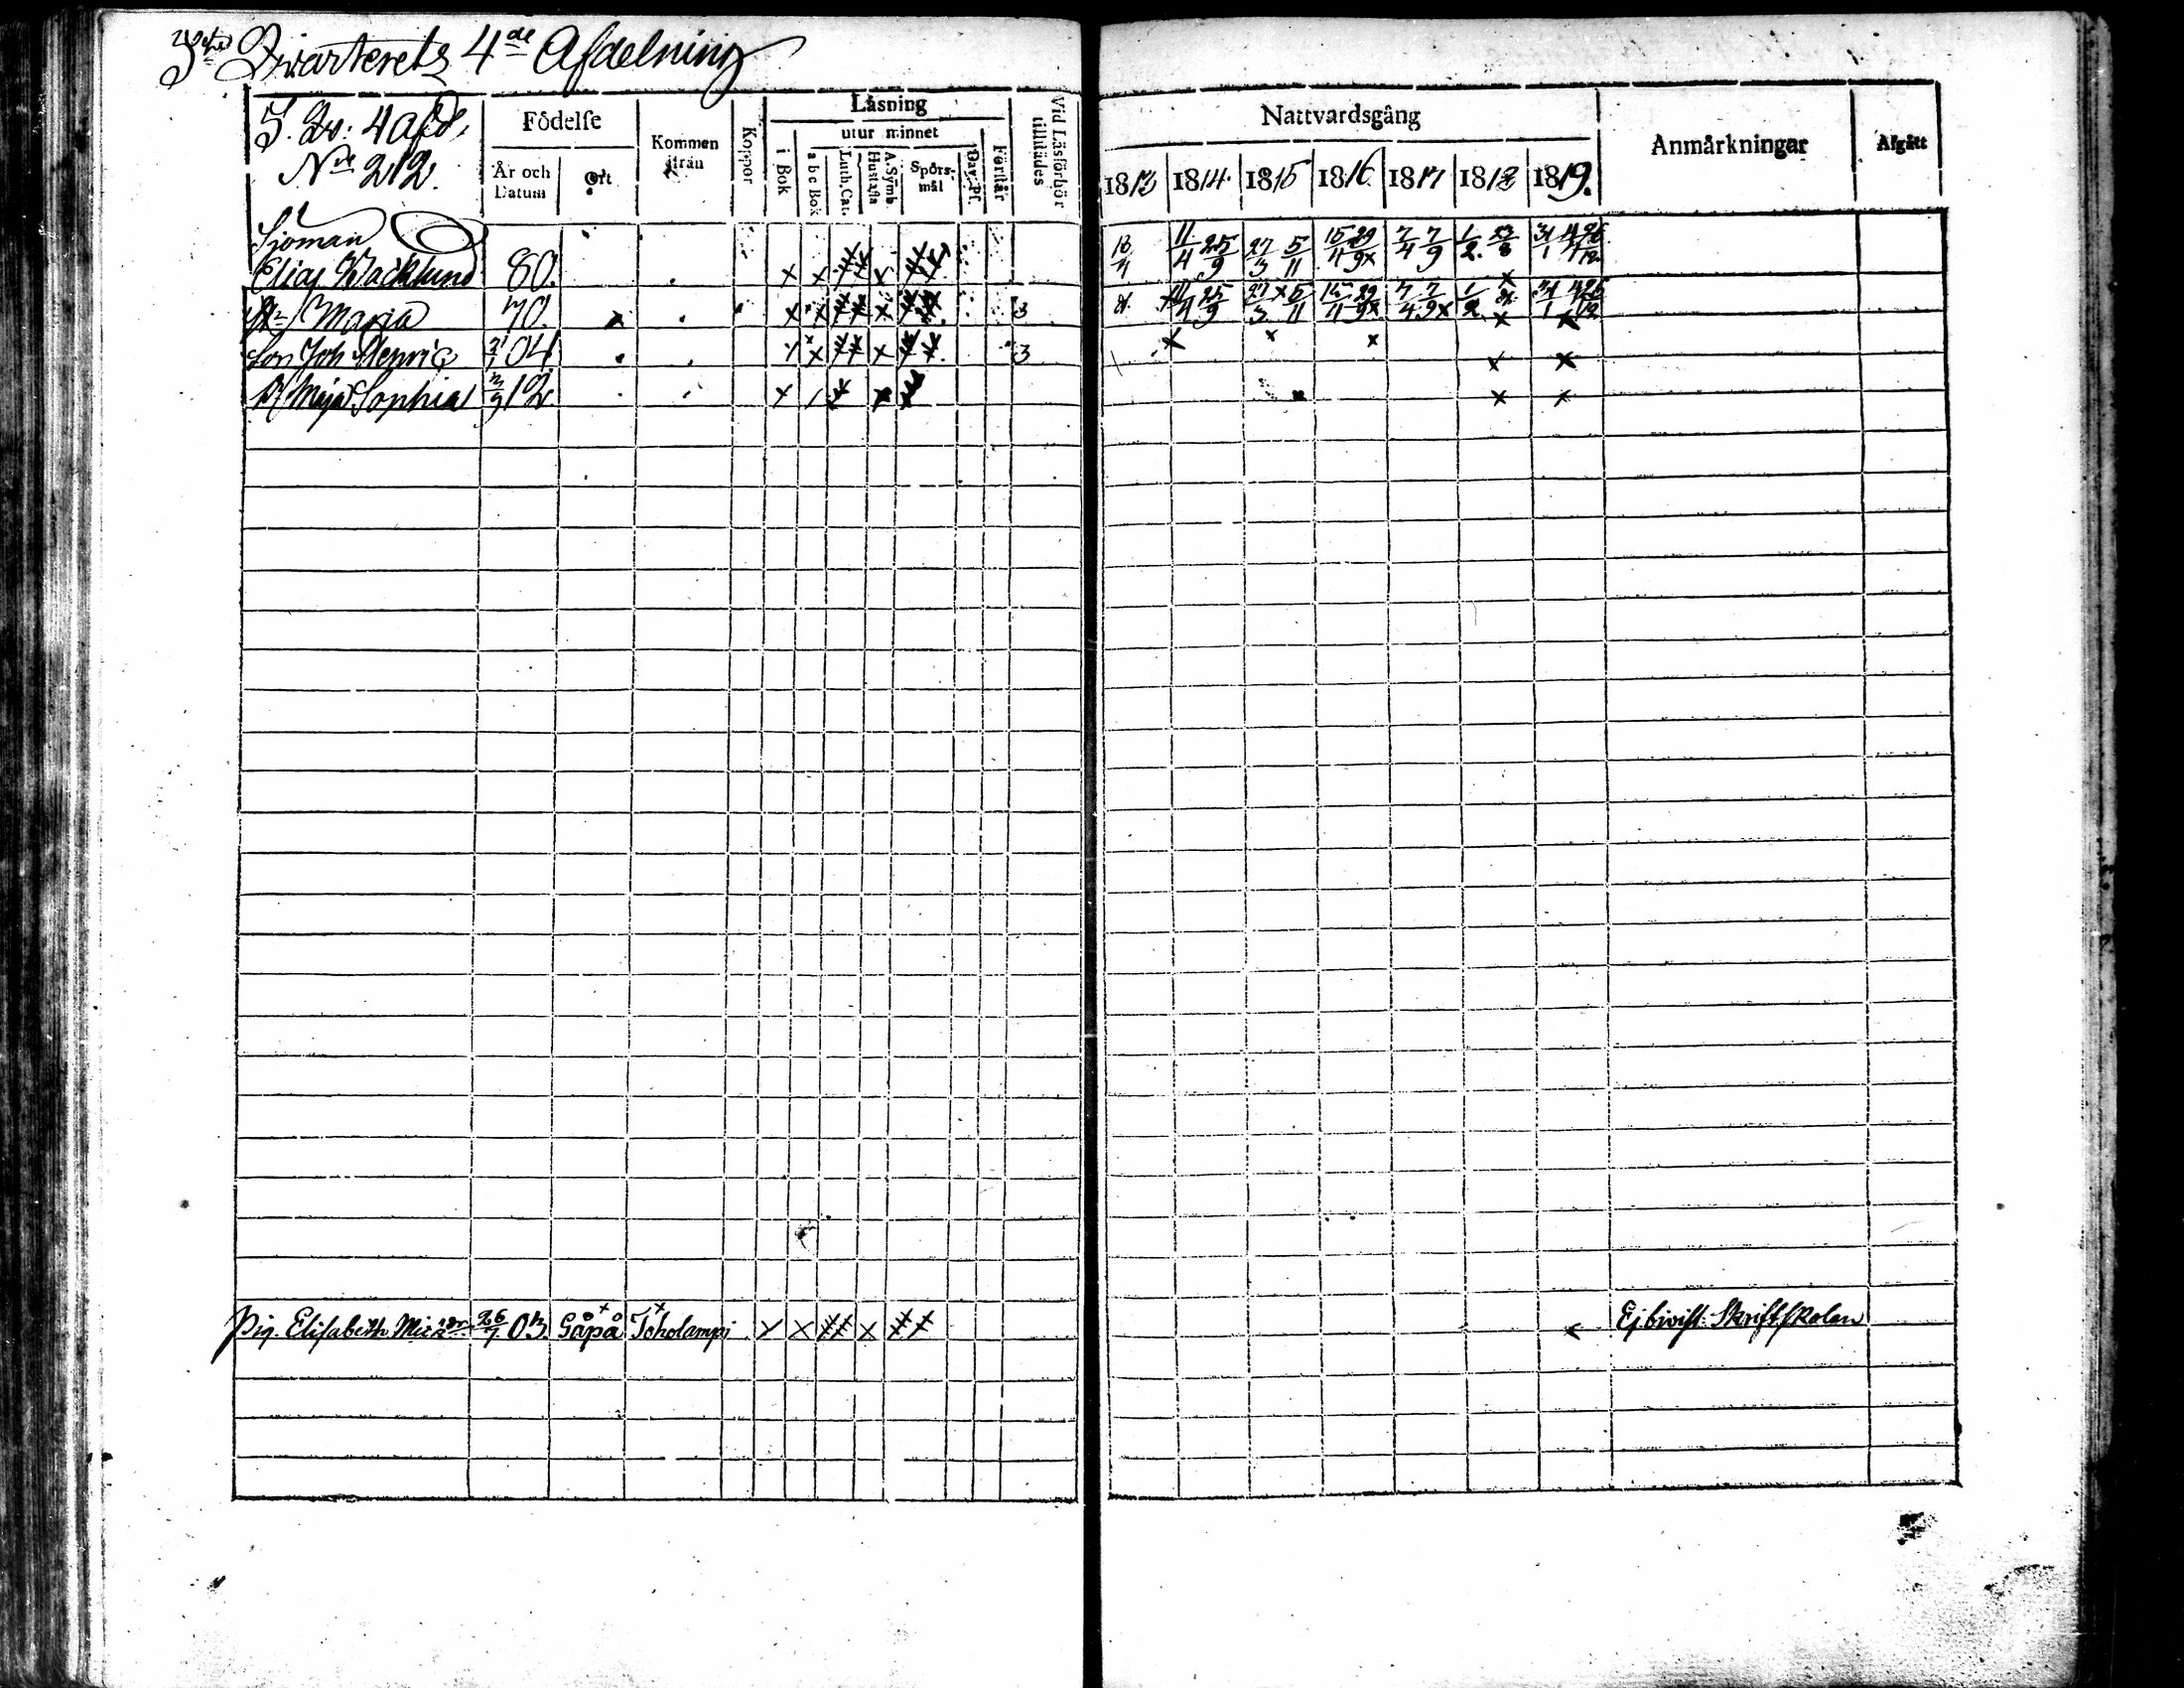 Qwarterets 4de Afdelning
3. Qv: 4 Afd,
No 212.
Födelse
År och Datum
Ort
Kommen ifrån
Koppor
Läsning
i Bok
utur minnet
a b c Bok
Luth. Cat.
A. Symb. Hustafla
Spörsmål
Dav. Ps.
Förstår
Vid Läsförhör tillstädes
Nattvardsgång
1813 1814. 1815 1816 1817 1818 1819.
Anmärkningar
Afgått
Sjöman
Elias Backlund 80. x x x 11/4 25/9 27/3 5/11 15/4 29/9 x 7/4 7/9 1/2.
Maria 70. x x x 3 25/9 27/3 x 5/11 29/9 x 7/4 7/9 x 1/2 x x
Son Joh Henric 04 x x 3 x x x x x
Maja Sophia 12 x x x x x
Pig. Elisabeth Mic 26/7 03 Gåpå Toholampi x x x Ej biwist Skriftskolan